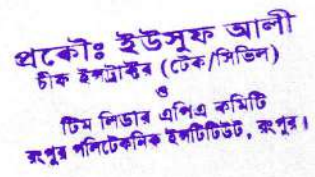 প্রকৌঃ ইউসুফ আলী
চীফ ইন্সট্রাক্টর (টেক/সিভিল)
ও
টিম লিডার এপিএ কমিটি
রংপুর পলিটেকনিক ইন্সটিটিউট, রংপুর।